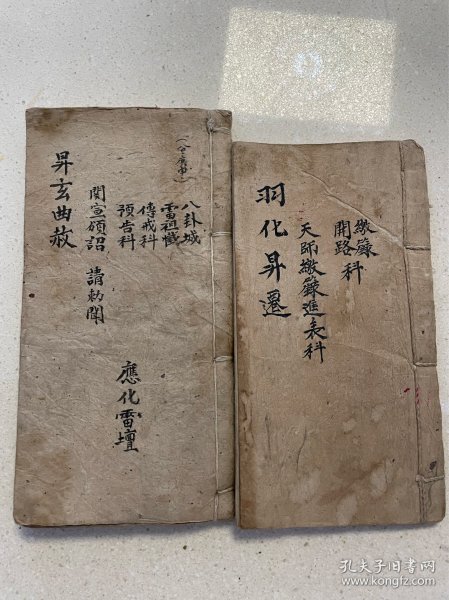 八卦城
雷祖懺
傳戒科
預告科
開宣頌詔 請勅聞
昇玄曲赦
應化雷壇
繳籙
開路科
天師繳籙進表科
羽化昇遷
孔夫子旧书网
www.kongfz.com